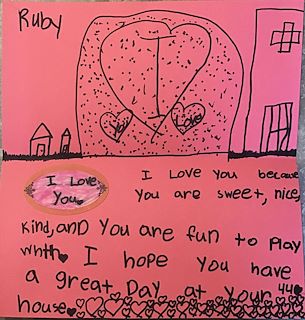 Ruby
I
You Love
I Love You
I Love you because
You are sweet, nice,
Kind, and You are fun to Play
with I hope You have
a great Day at your
house